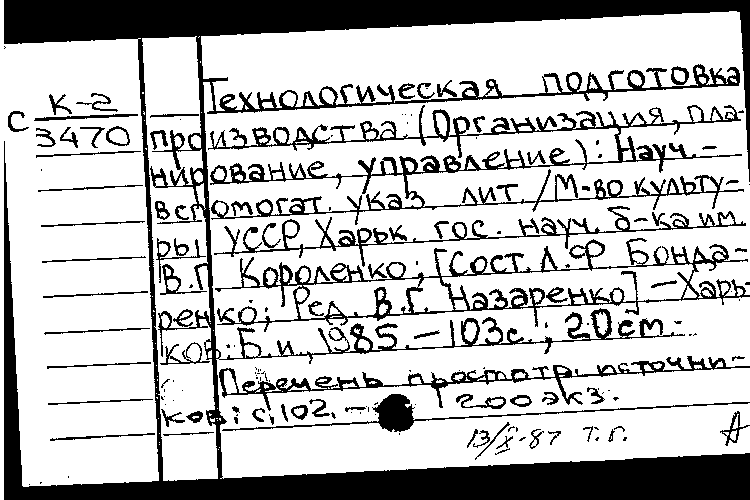 Технологическая подготовка
С К-2
3470
производства (Организация, пла-
нирование, управление): Науч.-
вспомогат. указ. лит. /М-во культу-
ры УССР, Харьк. гос. науч. б-ка им.
В.Г. Короленко; [Сост. Л.Ф Бонда-
ренко; Ред. В.Г. Назаренко] – Харь-
ков: Б.и., 1985. – 103с.; 20см. –
Перечень просмотр. источни-
ков: с. 102. – 1200 экз.
13/X-87 Т.Г.
А